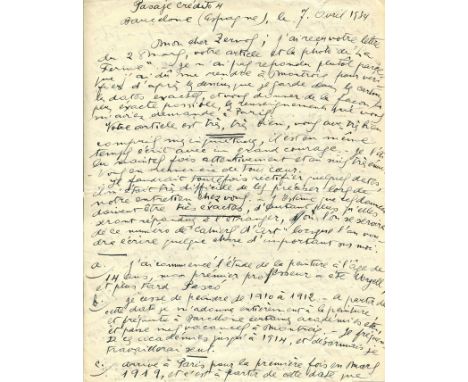 Pasaje crédito 4
Barcelone (Espagne), le 7 Avril 1934
Mon cher Zervos; j'ai reçu votre lettre
du 2 Mars, votre article et la photo de "La
Ferme". Je n'ai pu répondre plutôt parce
que j'ai dû me rendre à Montroig pour véri-
fier d'après les dessins que je garde dans les cartons
les dates exactes, et vous donner de la façon la
plus exacte possible, les renseignements que vous
m'aviez demandé à Paris.
Votre article est très, très bien, vous avez très bien
compris mes inquiétudes, il est en même
temps écrit avec un grand courage. Je l'ai
lu maintes fois attentivement et ai très ému
vous en remercier de tout cœur.
Il faudrait toutefois rectifier quelques dates
c'était très difficile de les préciser lors de
notre entretien chez vous. J'estime que les données
doivent être très exactes, d'autant plus qu'elles
seront répandues à l'étranger, et on se servira
de ce numéro de "Cahiers d'art" lorsque l'on vou-
dra écrire quelque chose d'important sur moi.
a: J'ai commencé l'étude de la peinture à l'âge de
14 ans, mon premier professeur a été Urgell
et plus tard Pasco
b: je cesse de peindre de 1910 à 1912 - à partir de
cette date je m'adonne entièrement à la peinture
et fréquente à Barcelone certaines académies etc,
et passe mes vacances à Montroig - Je fréquen-
te ces académies jusqu'à 1914, et désormais je
travaillerai seul.
c: arrivé à Paris pour la première fois en Mars
1919, et c'est à partir de cette date que